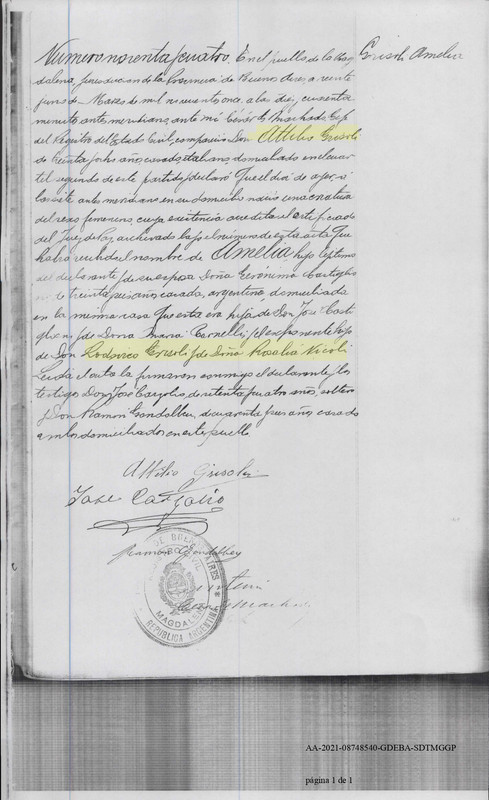 Numero noventa y cuatro. En el pueblo de la Mag
Grisoli Amelia
dalena, jurisdiccion de la Provincia de Buenos Aires, a veinte
y uno de Marzo de mil novecientos once, a las diez y cuarenta
minutos ante meridiano, ante mi Cesar G. Machado Gefe
del Registro del Estado Civil, comparecio Don Attilio Grisoli
de treinta y ocho años, casado, italiano, domiciliado en el cuar
tel segundo de este partido, y declaró: Que el dia de ayer, a
las siete ante meridiano en su domicilio nació una criatura
del sexo femenino, cuya existencia acredita el
del Juez de Paz, archivado bajo el número de esta acta. Que
había recibido el nombre de AMELIA, hija legítima
del declarante y de su esposa Doña Gerónima Castiglio
ni de treinta y seis años, casada, argentina, domiciliada
en la misma casa. Que esta era hija de Don José Casti
glioni y de Doña María y el exponente hijo
de Don Lodovico Grisoli y de Doña Rosalia Nicoli
Leida el acta la firmaron conmigo el declarante y los
testigos Don José de setenta y cuatro años, soltero
y Don Ramón de cuarenta y tres años, casado
ambos domiciliados en este pueblo.
Attilio Grisoli
José
Ramon
MAGDALENA
REPUBLICA ARGENTINA
AA-2021-08748540-GDEBA-SDTMGGP
página 1 de 1